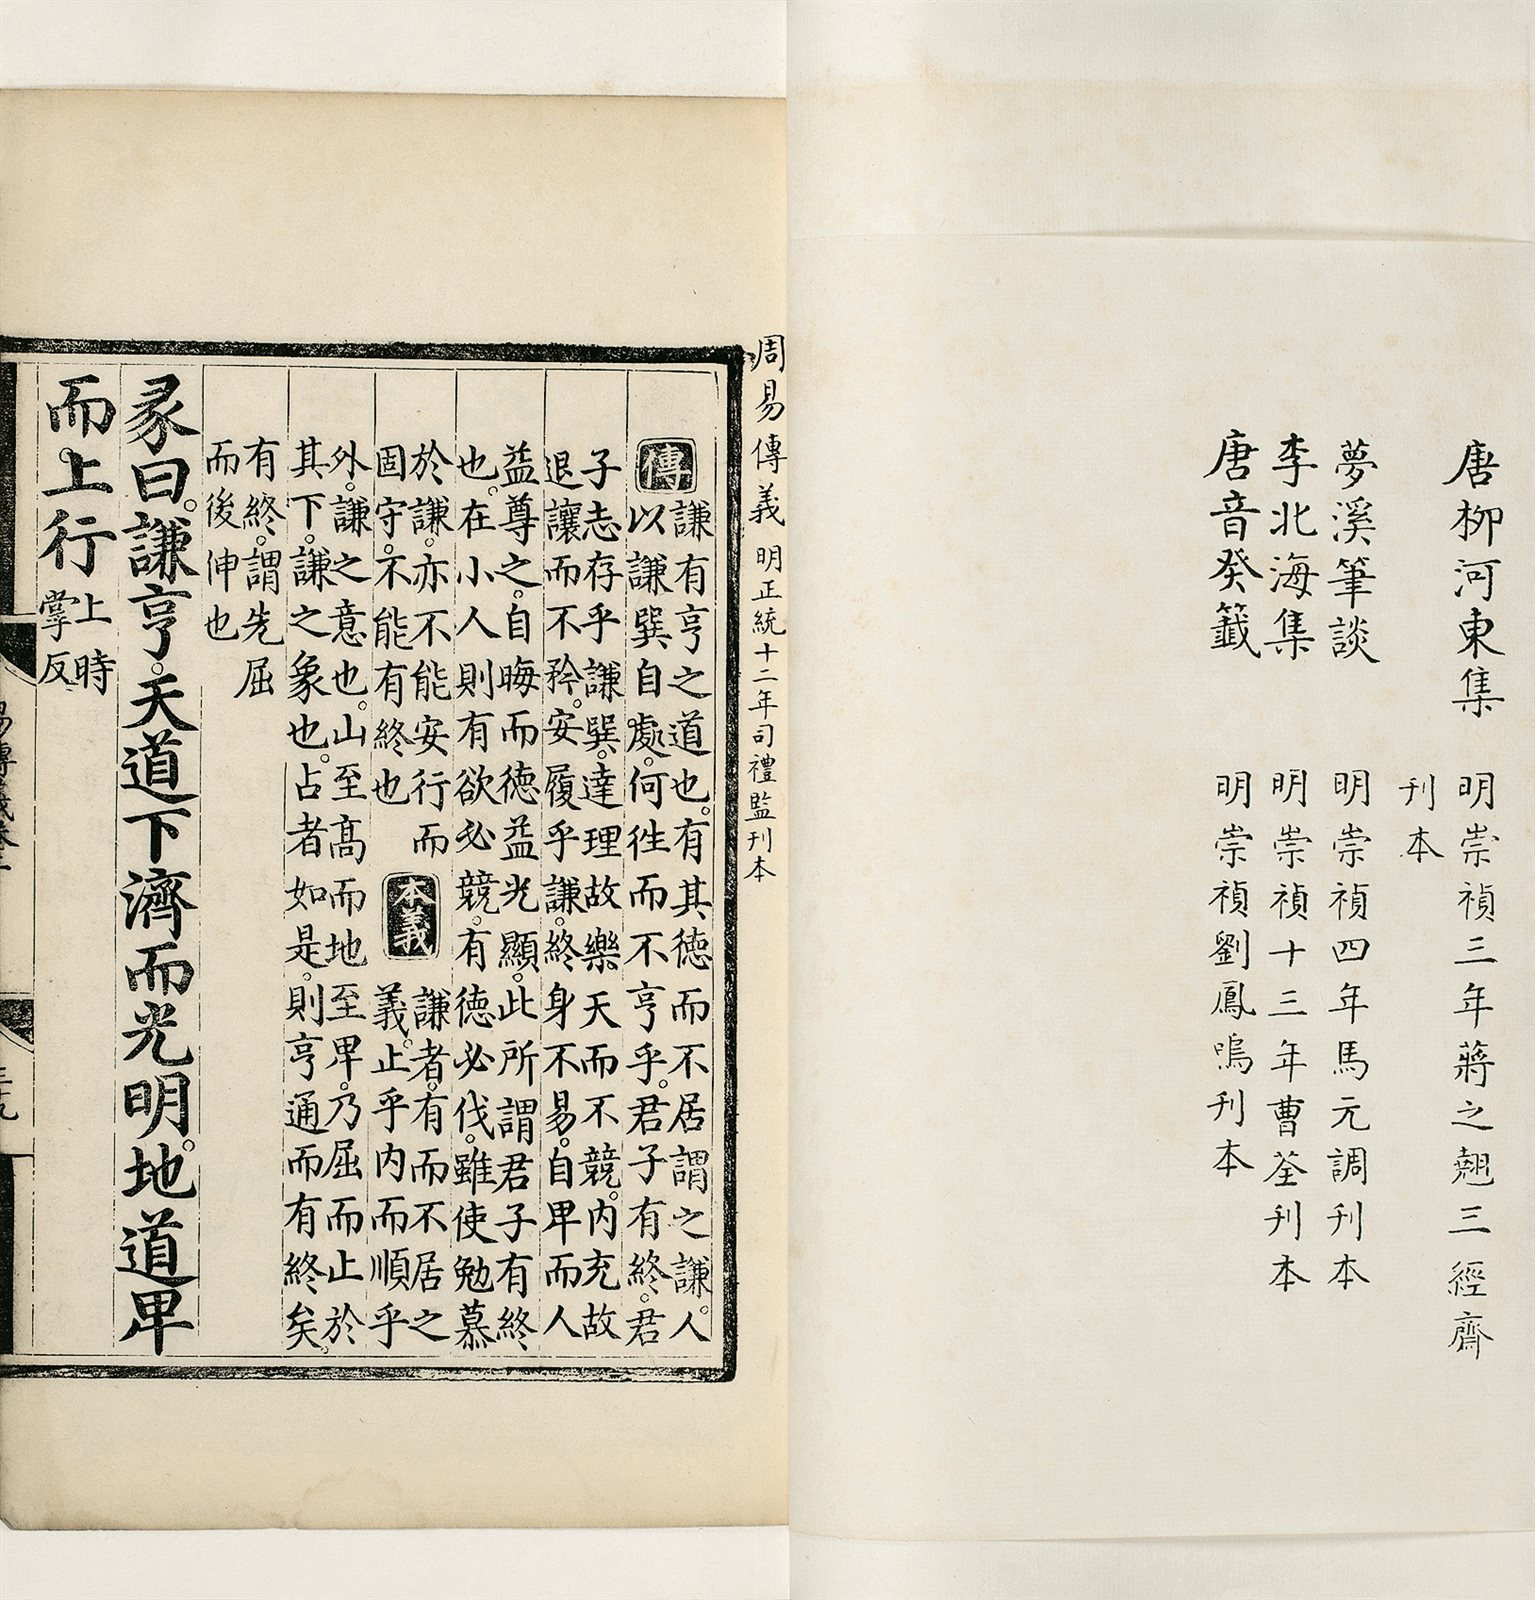 唐柳河東集 明崇禎三年蔣之翹三經齋
刊本
夢溪筆談 明崇禎四年馬元調刊本
李北海集 明崇禎十三年曹荃刊本
唐音癸籤 明崇禎劉鳳鳴刊本
周易傳義 明正統十二年司禮監刊本
傳 謙有亨之道也。有其徳而不居謂之謙。人
以謙巽自處。何徃而不亨乎。君子有終。君
子志存乎謙巽。達理故樂天而不競。内充故
退讓而不矜。安履乎謙。終身不易。自卑而人
益尊之。自晦而徳益光顯。此所謂君子有終
也。在小人則有欲必競。有徳必伐。雖使勉慕
於謙。亦不能安行而
固守。不能有終也
本義 謙者。有而不居之
義。止乎内而順乎
外。謙之意也。山至髙而地至卑。乃屈而止於
其下。謙之象也。占者如是。則亨通而有終矣。
有終。謂先屈
而後伸也
彖曰。謙亨。天道下濟而光明。地道卑
而上行 上時
掌反